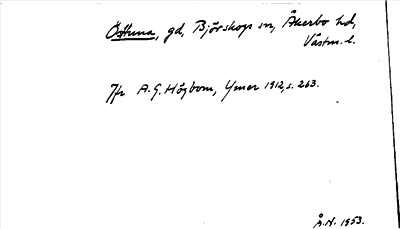 Östuna, gd, Björskogs sn, Åkerbo hd,
Västm. l.
Jfr A. G. Högbom, Ymer 1912, s. 263.
Å.N. 1953.